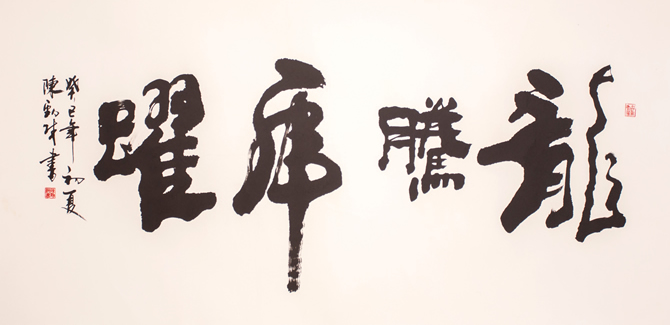 龍騰虎躍
癸巳年初夏
陳鈞才書